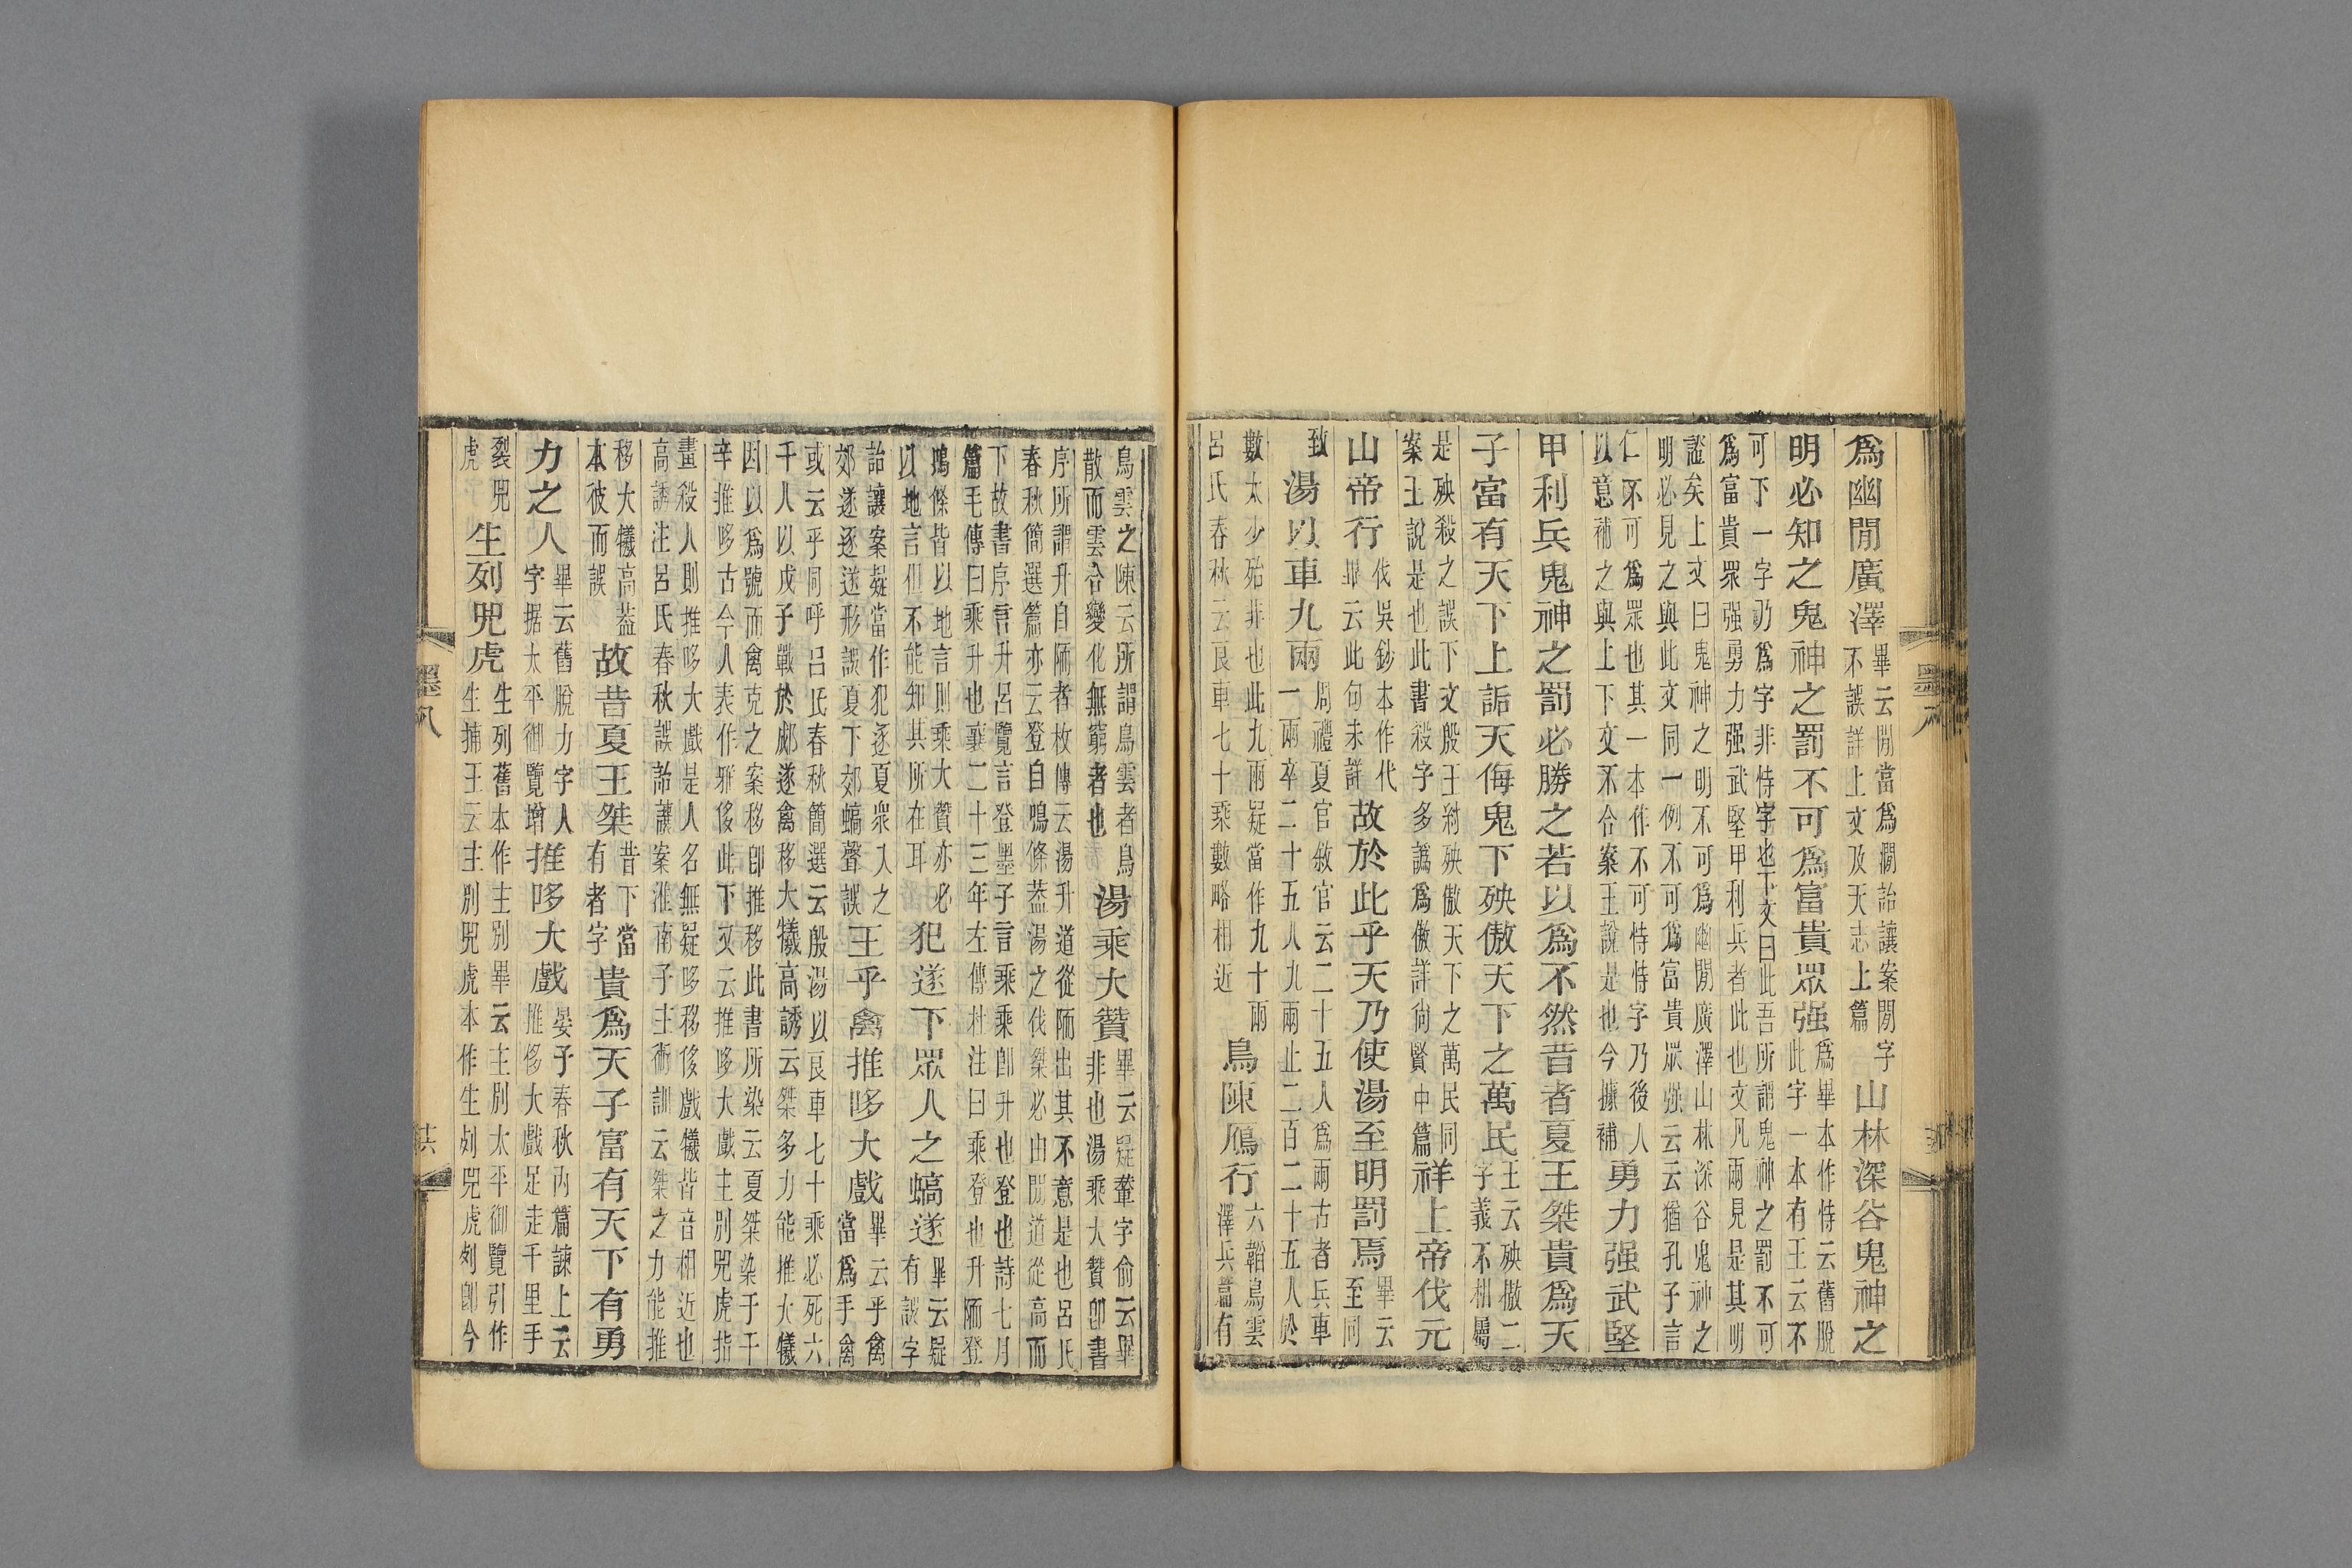 爲幽閒廣澤畢云閒當爲澗詒讓案閒字不誤詳上文及天志上篇山林深谷鬼神之
明必知之鬼神之罰不可爲富貴眾强爲畢本作恃云舊脫此字一本有王云不
可下一字乃爲字非恃字也下文曰此吾所謂鬼神之罰不可爲富貴眾强勇力强武堅甲利兵者此也文凡兩見是其明
證矣上文曰鬼神之明不可爲幽閒廣澤山林深谷鬼神之明必見之與此文同一例不可爲富貴眾强云云猶孔子言
仁不可爲眾也其一本作不可恃恃字乃後人以意補之與上下文不合案王說是也今據補勇力强武堅
甲利兵鬼神之罰必勝之若以爲不然昔者夏王桀貴爲天
子富有天下上詬天侮鬼下殃傲天下之萬民王云殃傲二字義不相屬
是殃殺之誤下文殷王紂殃傲天下之萬民同案王說是也此書殺字多譌爲傲詳尙賢中篇祥上帝伐元
山帝行伐吳鈔本作代畢云此句未詳故於此乎天乃使湯至明罰焉畢云至同
致湯以車九兩周禮夏官敘官云二十五人爲兩古者兵車一兩卒二十五人九兩止二百二十五人於
數太少殆非也此九兩疑當作九十兩呂氏春秋云良車七十乘數略相近鳥陳鴈行六韜鳥雲澤兵篇有
鳥雲之陳云所謂鳥雲者鳥散而雲合變化無窮者也湯乘大贊畢云疑輦字俞云畢非也湯乘大贊卽書
序所謂升自陑者枚傳云湯升道從陑出其不意是也呂氏春秋簡選篇亦云登自鳴條蓋湯之伐桀必由閒道從高而
下故書序言升呂覽言登墨子言乘乘卽升也登也詩七月篇毛傳曰乘升也襄二十三年左傳杜注曰乘登也升陑登
鳴條皆以地言則乘大贊亦必以地言但不能知其所在耳犯遂下眾人之蟜遂畢云疑有誤字
詒讓案疑當作犯逐夏眾入之郊遂逐遂形誤夏下郊蟜聲誤王乎禽推哆大戲畢云乎禽當爲手禽
或云乎同呼呂氏春秋簡選云殷湯以良車七十乘必死六千人以戊子戰於郕遂禽移大犧高誘云桀多力能推大犧
因以爲號而禽克之案移卽推移此書所染云夏桀染于干辛推哆古今人表作雅侈此下文云推哆大戲主別兕虎指
畫殺人則推哆大戲是人名無疑哆移侈戲犧皆音相近也高誘注呂氏春秋誤詒讓案淮南子主術訓云桀之力能推
移大犧高蓋本彼而誤故昔夏王桀昔下當有者字貴爲天子富有天下有勇
力之人畢云舊脫力字人字据太平御覽增推哆大戲晏子春秋內篇諫上云推侈大戲足走千里手
裂兕虎生列兕虎生列舊本作主別畢云主別太平御覽引作生捕王云主別兕虎本作生列兕虎列卽今
墨八